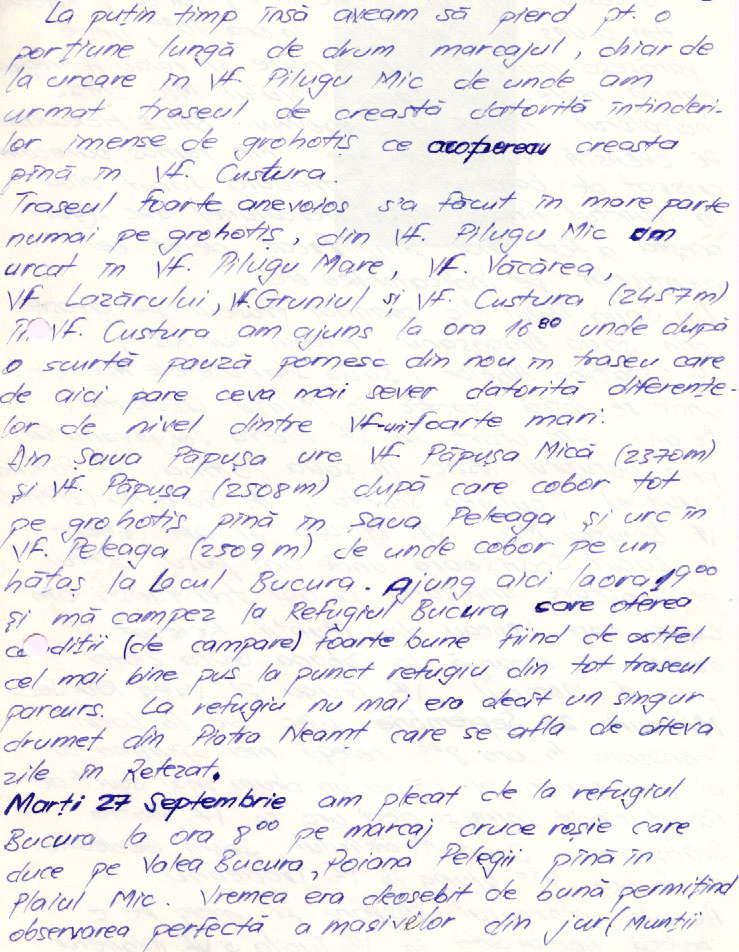 La puțin timp însă aveam să pierd pt. o
porțiune lungă de drum marcajul, chiar de
la urcare în Vf. Pilugu Mic de unde am
urmat traseul de creastă datorită întinderi-
lor imense de grohotiș ce acopereau creasta
pînă în Vf. Custura.
Traseul foarte anevoios s'a făcut în mare parte
numai pe grohotiș, din Vf. Pilugu Mic am
urcat în Vf. Pilugu Mare, Vf. Văcărea,
Vf Lazărului, Vf.Gruniul și Vf. Custura (2457m)
În Vf. Custura am ajuns la ora 16⁸⁰ unde după
o scurtă pauză pornesc din nou în traseu care
de aici pare ceva mai sever datorită diferențe-
lor de nivel dintre Vf-uri foarte mari.
Din Șaua Păpușa urc Vf Păpușa Mică (2370m)
și Vf. Păpușa (2508m) după care cobor tot
pe grohotiș pînă în Șaua Peleaga și urc în
Vf. Peleaga (2509m) de unde cobor pe un
hățaș la Lacul Bucura. Ajung aici la ora 19⁰⁰
și mă campez la Refugiul Bucura care oferea
condiții (de campare) foarte bune fiind de astfel
cel mai bine pus la punct refugiu din tot traseul
parcurs. La refugiu nu mai era decît un singur
drumeț din Piatra Neamț care se afla de cîteva
zile în Retezat.
Marți 27 Septembrie am plecat de la refugiul
Bucura la ora 8⁰⁰ pe marcaj cruce roșie care
duce pe Valea Bucura, Poiana Pelegii pînă în
Plaiul Mic. Vremea era deosebit de bună permițînd
observarea perfectă a masivelor din jur (Munții